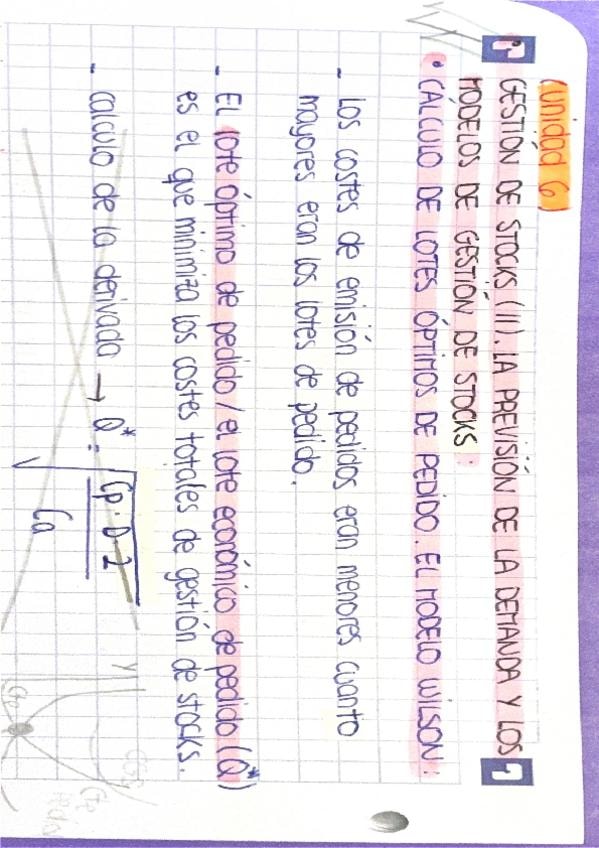 (Unidad 6)
GESTIÓN DE STOCKS (II). LA PREVISIÓN DE LA DEMANDA Y LOS
MÓDELOS DE GESTIÓN DE STOCKS:
• CALCULO DE LOTES ÓPTIMOS DE PEDIDO. EL MODELO WILSON:
- Los costes de emisión de pedidos eran menores cuanto
mayores eran los lotes de pedido.
- El lote óptimo de pedido / el lote económico de pedido (Q*)
es el que minimiza los costes totales de gestión de stocks.
- calculo de la derivada → Q* = √(Cp · D · 2 / Ca)